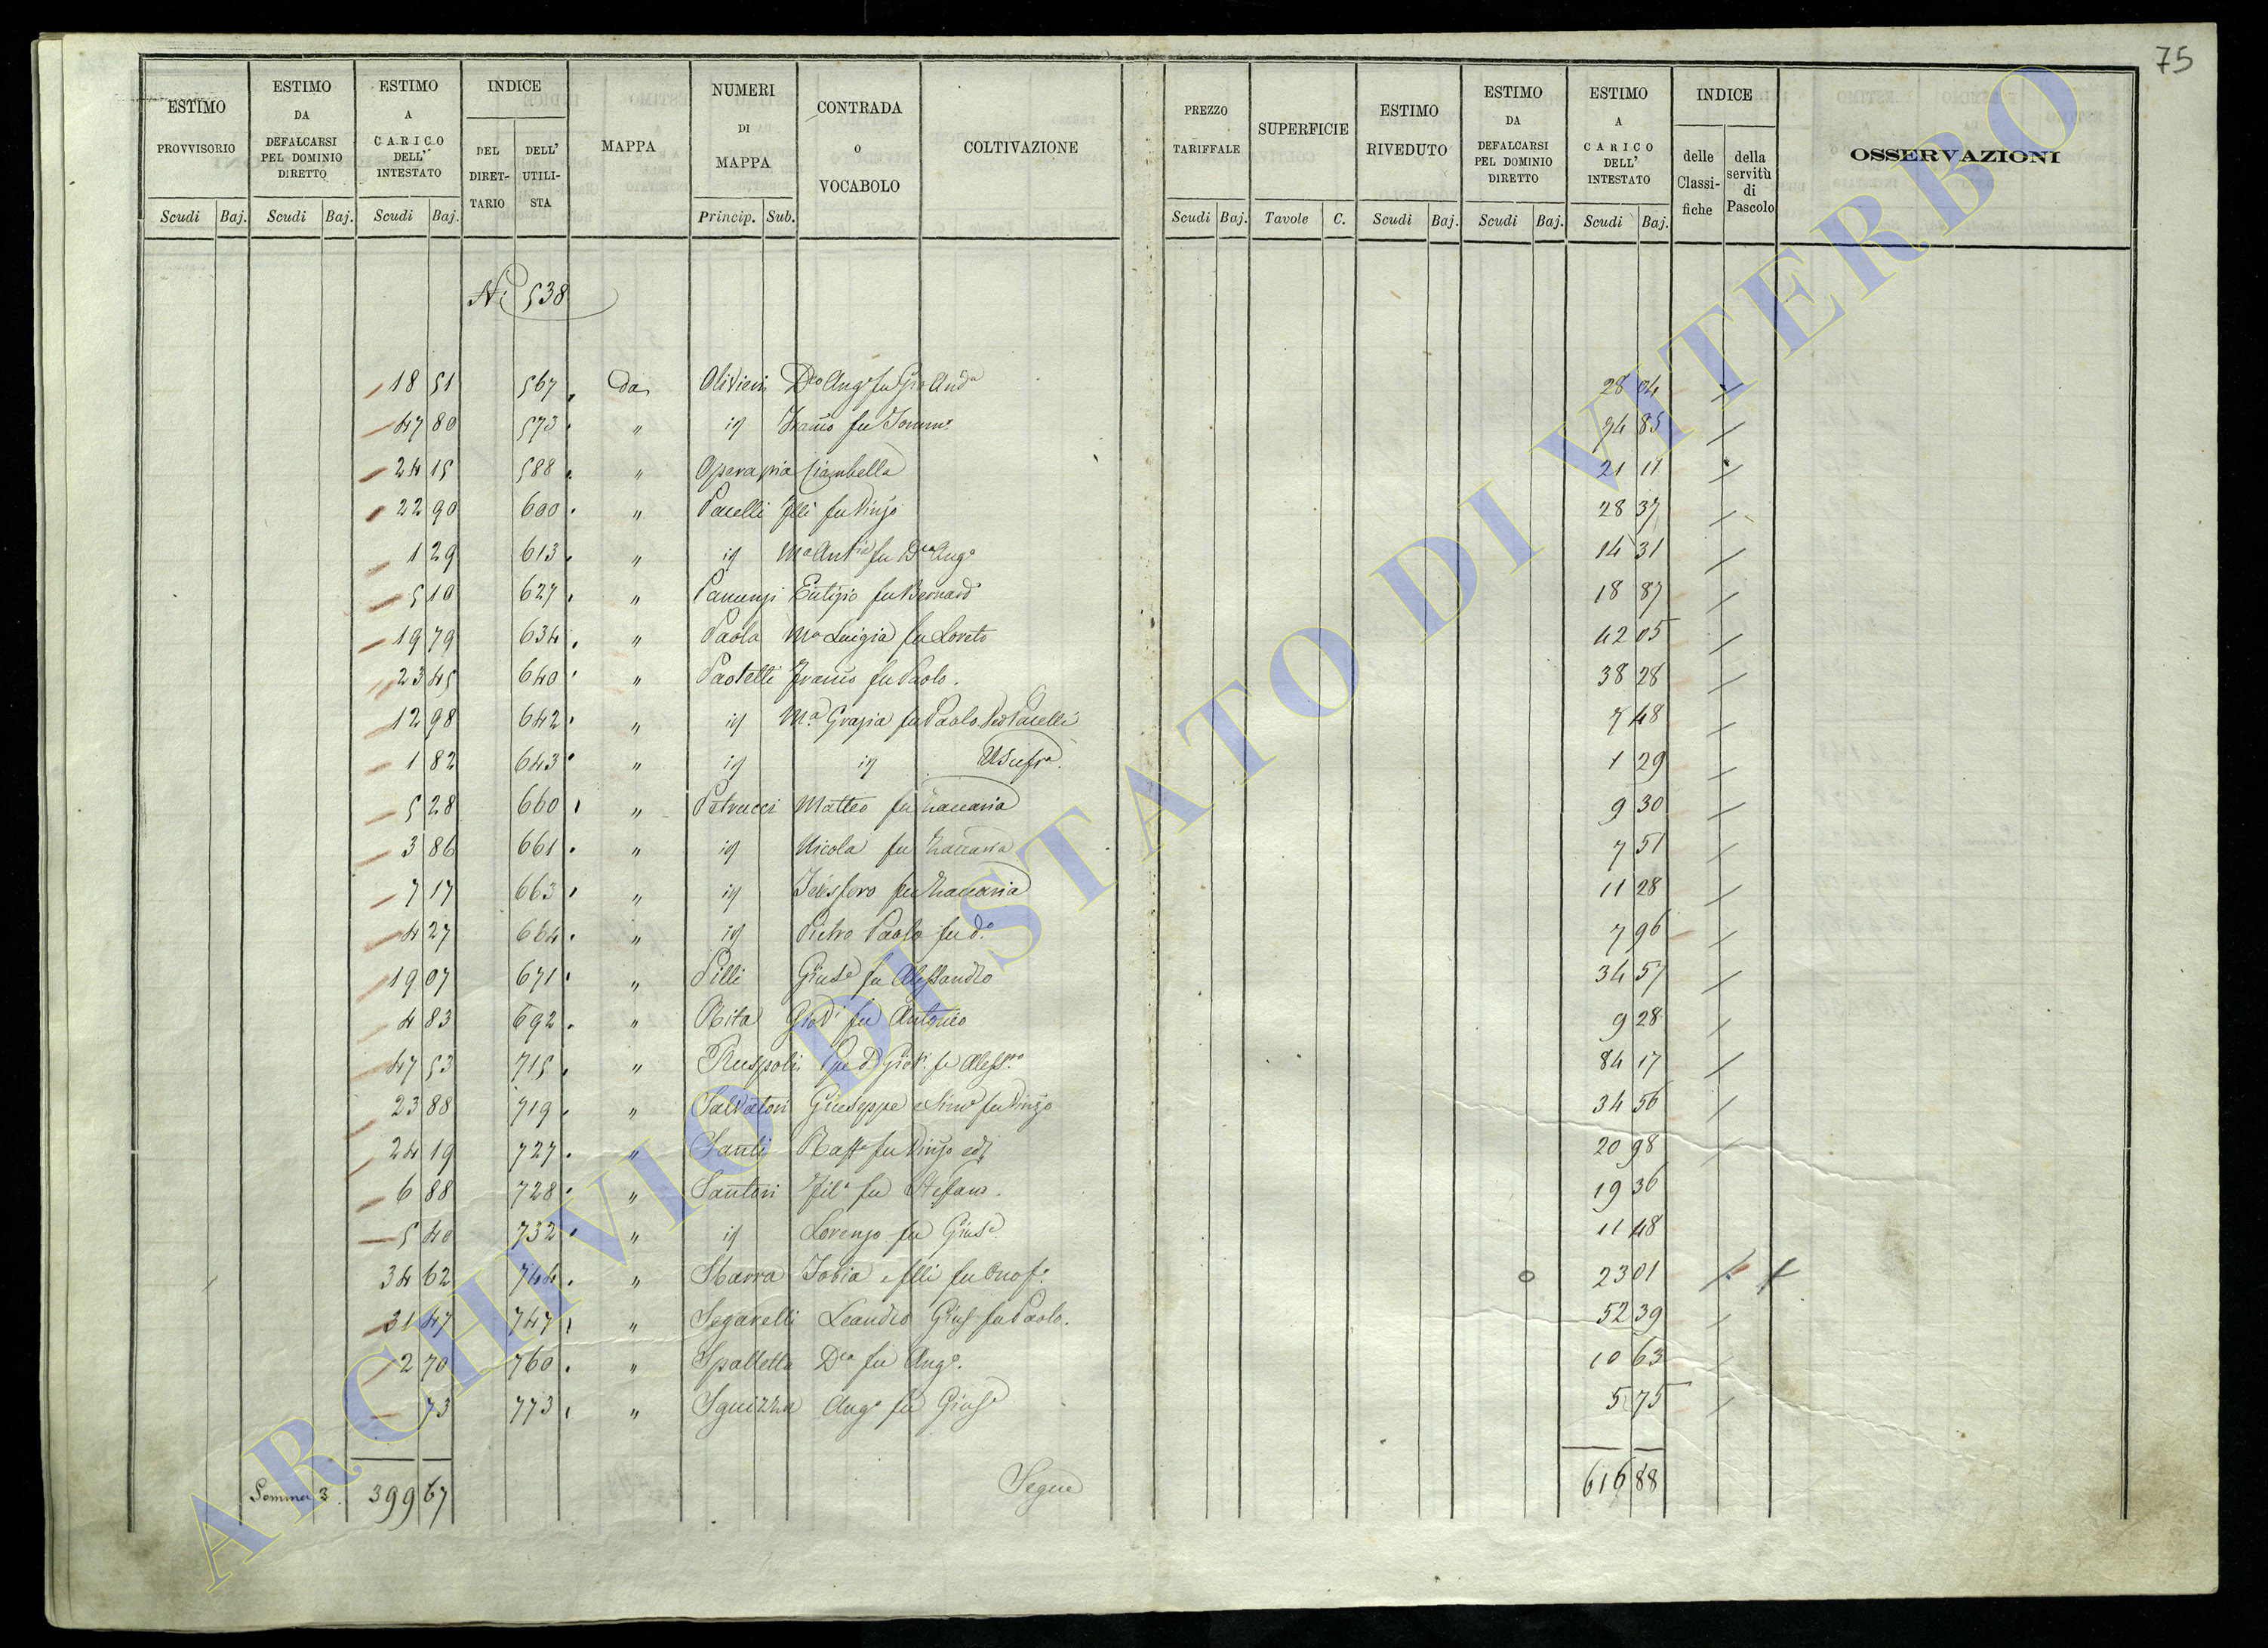 75
ESTIMO PROVVISORIO Scudi Baj.
ESTIMO DA DEFALCARSI PEL DOMINIO DIRETTO Scudi Baj.
ESTIMO A CARICO DELL' INTESTATO Scudi Baj.
INDICE DEL DIRETTARIO DELL' UTILISTA
MAPPA
NUMERI DI MAPPA Princip. Sub.
CONTRADA o VOCABOLO
COLTIVAZIONE
PREZZO TARIFFALE Scudi Baj.
SUPERFICIE Tavole C.
ESTIMO RIVEDUTO Scudi Baj.
ESTIMO DA DEFALCARSI PEL DOMINIO DIRETTO Scudi Baj.
ESTIMO A CARICO DELL' INTESTATO Scudi Baj.
INDICE delle Classifiche della servitù di Pascolo
OSSERVAZIONI
538
18 51 567 da Olivieri Dco Ango fu Gio Anda 28 04
47 80 573 " id fu Tomm 94 85
24 15 588 " Opera pia Ciambella 21 11
22 90 600 " Pacelli flli fu Vinzo 28 37
1 29 613 " id Ma Anta fu Dco Ango 14 31
5 10 627 " Panunzi Eutizio fu Bernard 18 87
19 79 634 " Paola Ma Luigia fu Loreto 42 05
23 45 640 " Paolelli fu Paolo. 38 28
12 98 642 " id Ma Grazia fu Paolo Pacelli 7 48
1 82 643 " id id Usufra. 1 29
5 28 660 " Petrucci Matteo fu Zaccaria 9 30
3 86 661 " id Nicola fu Zaccaria 7 51
7 17 663 " id Telesforo fu Zaccaria 11 28
4 27 664 " id Pietro Paolo fu do 7 96
19 07 671 " Pilli Giuse fu Alessandro 34 57
4 83 692 " Rita Giovi fu Antonio 9 28
47 53 715 " Ruspoli Giovi fu Aless. 84 17
23 88 719 " Salvatori Giuseppe e fu Vinzo 34 56
24 19 727 " Santi Raffe fu Vinzo 20 98
6 88 728 " Santori Fila fu Stefano. 19 36
5 40 732 " id Lorenzo fu Giuse. 11 48
34 62 744 " Sbarra Tobia e flli fu Onofo. 23 01
31 47 747 " Segarelli Leandro Gius fu Paolo. 52 39
2 70 760 " Spalletta Dco fu Ango. 10 63
73 773 " Sguizza Ango fu Giuse 5 75
Somma 3. 399 67 Segue 616 88
ARCHIVIO DI STATO DI VITERBO